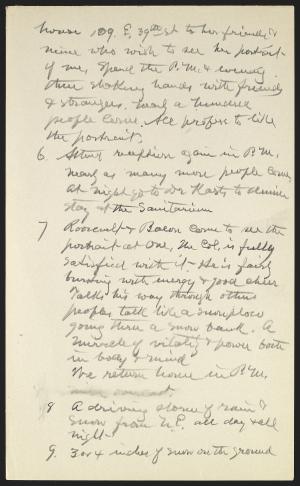 house 109. E. 39th st to her friends &
mine who wish to see her portrait
of me. Spend the P.M. & evening
there shaking hands with friends
& strangers. Nearly a hundred
people come. All profess to like
the portrait.
6 Attend reception again in P.M.
nearly as many more people come,
At night go to Dr. to
stay at the Sanitarium
7 Roosevelt & Bacon come to see the
portrait at one, The Col. is fully
satisfied with it - He is fairly
bursting with energy & good cheer
Talks his way through other
peoples talk like a snowplow
going through a snow bank. A
miracle of vitality & power both
in body & mind
We return home in P.M.
8 A driving storm of rain &
snow from N.E. all day & all
night -
9. 3 or 4 inches of snow on the ground